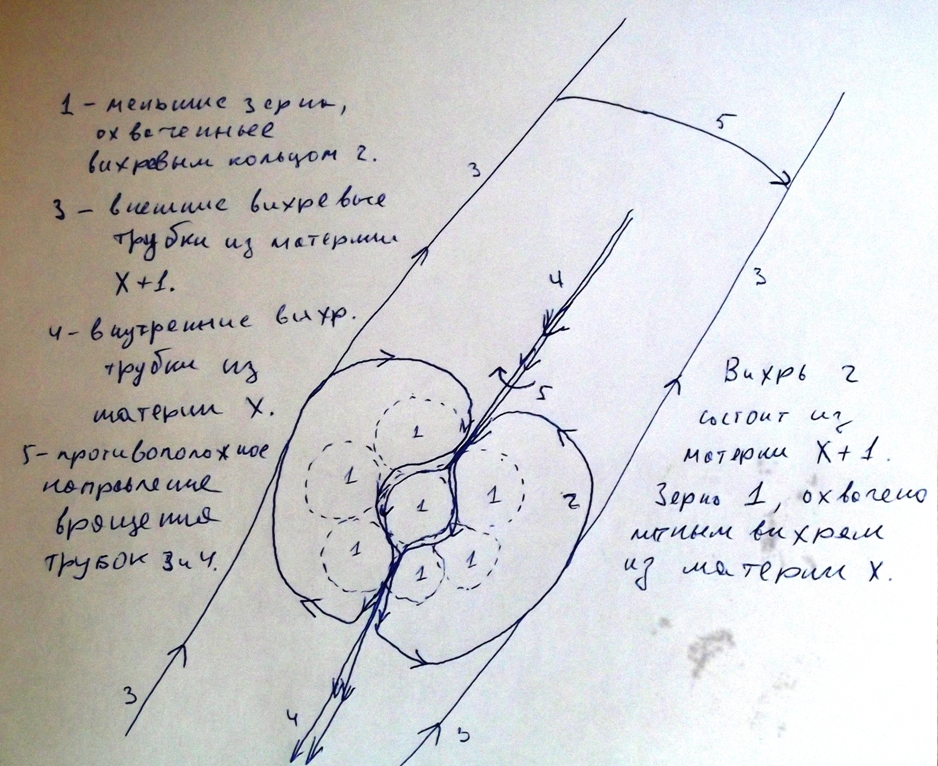 1 - меньшие зерна,
охваченные
вихревым кольцом 2.
3 - внешние вихревые
трубки из материи
X+1.
4 - внутренние вихр.
трубки из
материи X.
5 - противоположное
направление
вращения
трубок 3 и 4.
5
3
3
4
5
Вихрь 2
состоит из
материи X+1.
Зерно 1, охвачено
вихрем
из материи X.
1
1
1
1
1
1
1
2
3
4
3